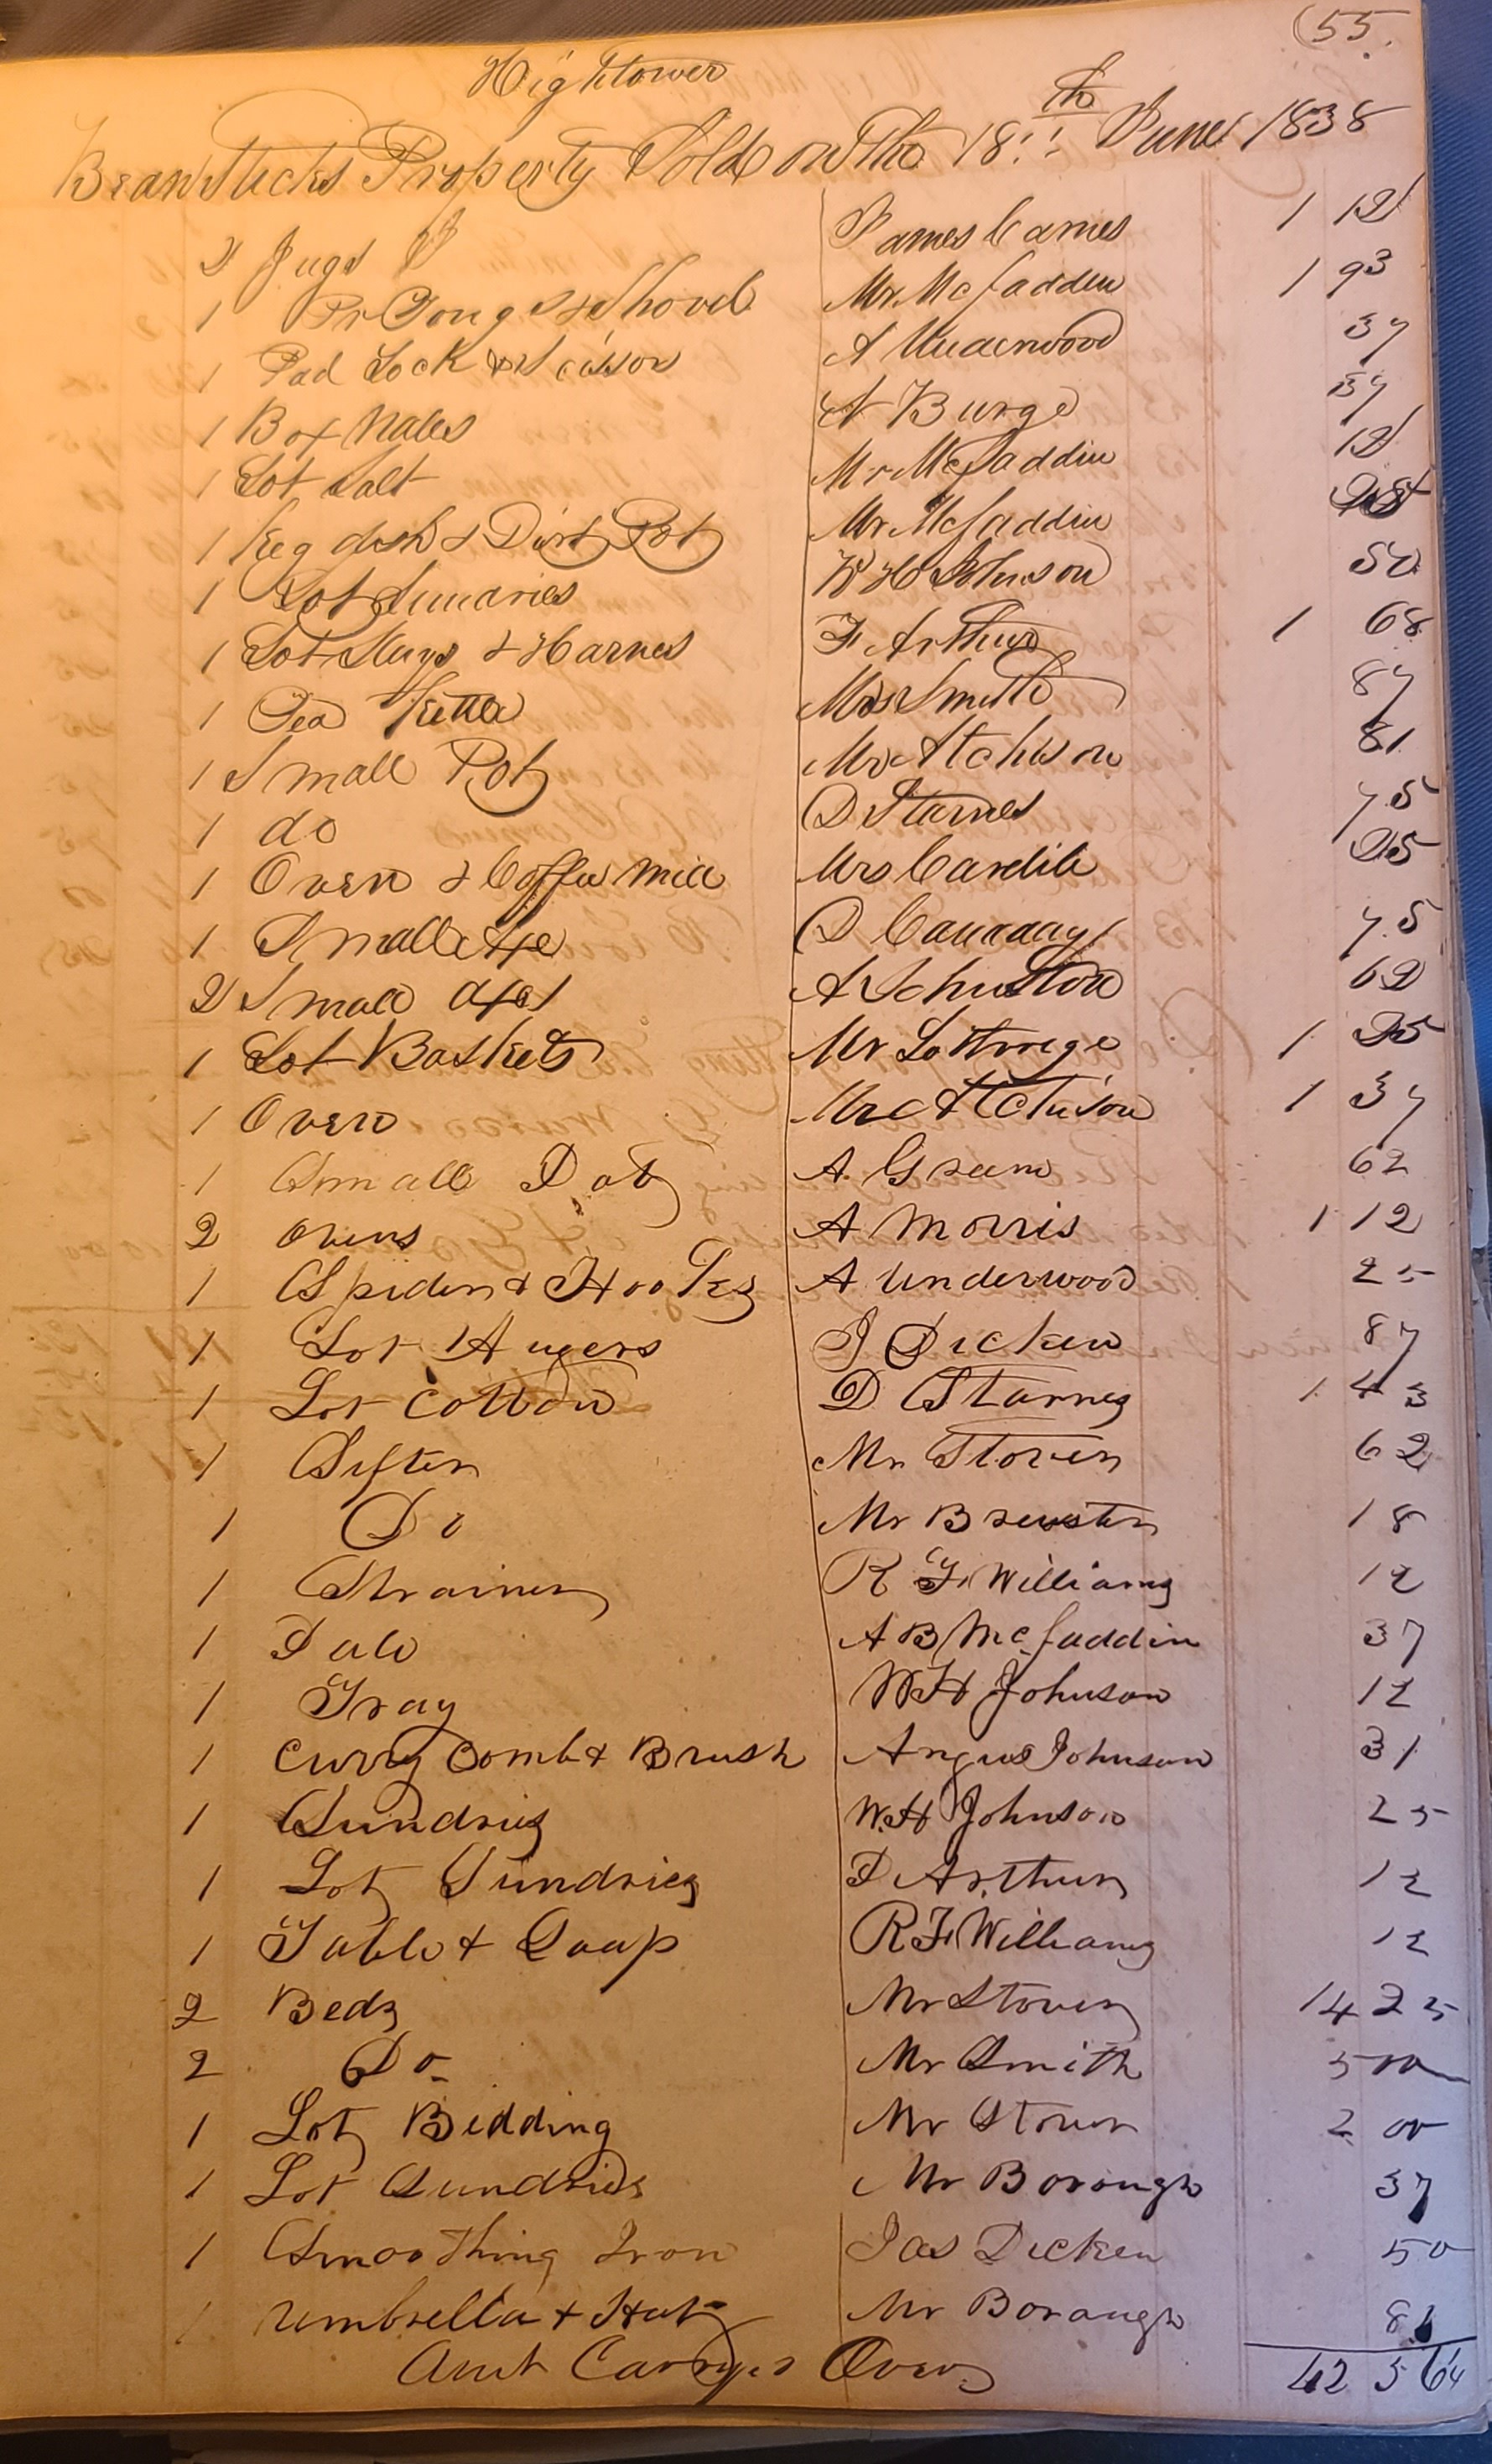 (55.
Hightower
Bean Sticks Property Sold on The 18th June 1838
2 Jugs James Carnes 1 12
1 Pr Tongs & Shovel Mr. McFaddin 1 93
1 Pad Lock & Scissors A Underwood 37
1 Box Nales A Burge 37
1 Lot Salt Mr McFaddin 12
1 Keg dish & Dirt Pot Mr McFaddin
1 Lot Sundries W H Johnson 50
1 Lot & Harnes F Arthur 1 68
1 Tea Kettle Mrs Smith 87
1 Small Pot Mr Atchison 81
1 do D Starnes 75
1 Oven & Coffee Mill Mrs 25
1 Small Axe D 75
2 Small Axes A Johnston 62
1 Lot Baskets Mr 1 25
1 Oven Mr Atchison 1 37
1 Small Pot A. Green 62
2 Ovens A Morris 1 12
1 Spider & Hooks A Underwood 25
1 Lot Augers J Dicken 87
1 Lot Cotton D Starnes 1 43
1 Sifter Mr Stover 62
1 Do Mr Brewster 18
1 Strainer R F Williams 12
1 Pale A B McFaddin 37
1 Tray W H Johnson 12
1 Curry Comb & Brush Angus Johnson 31
1 Sundries W. H Johnson 25
1 Lot Sundries D Arthur 12
1 Table & Soap R F Williams 12
2 Beds Mr Stover 14 25
2 Do Mr Smith 5 00
1 Lot Bedding Mr Stover 2 00
1 Lot Sundries Mr Borough 37
1 Smoothing Iron Jas Dicken 50
1 Umbrella & Hat Mr Borough 81
Amt Carryed Over 42 56¼